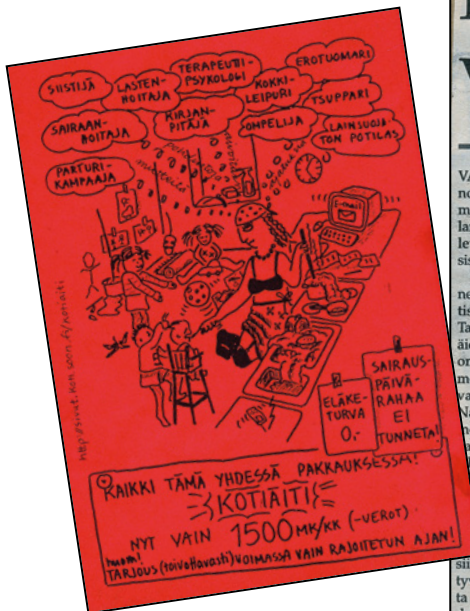 SIISTIJÄ
LASTEN-
HOITAJA
TERAPEUTTI-
PSYKOLOGI
KOKKI-
LEIPURI
EROTUOMARI
TSUPPARI
SAIRAAN-
HOITAJA
KIRJAN-
PITÄJÄ
OMPELIJA
LAINSUOJA-
TON POTILAS
PARTURI-
KAMPAAJA
E-mail
http://sivut.koti.soon.fi/kotiaiti
ELÄKE-
TURVA
0,-
SAIRAUS-
PÄIVÄ-
RAHAA
EI
TUNNETA!
KAIKKI TÄMÄ YHDESSÄ PAKKAUKSESSA!
KOTIÄITI
NYT VAIN 1500 MK/KK (-VEROT)
huom!
TARJOUS (toivottavasti) VOIMASSA VAIN RAJOITETUN AJAN!